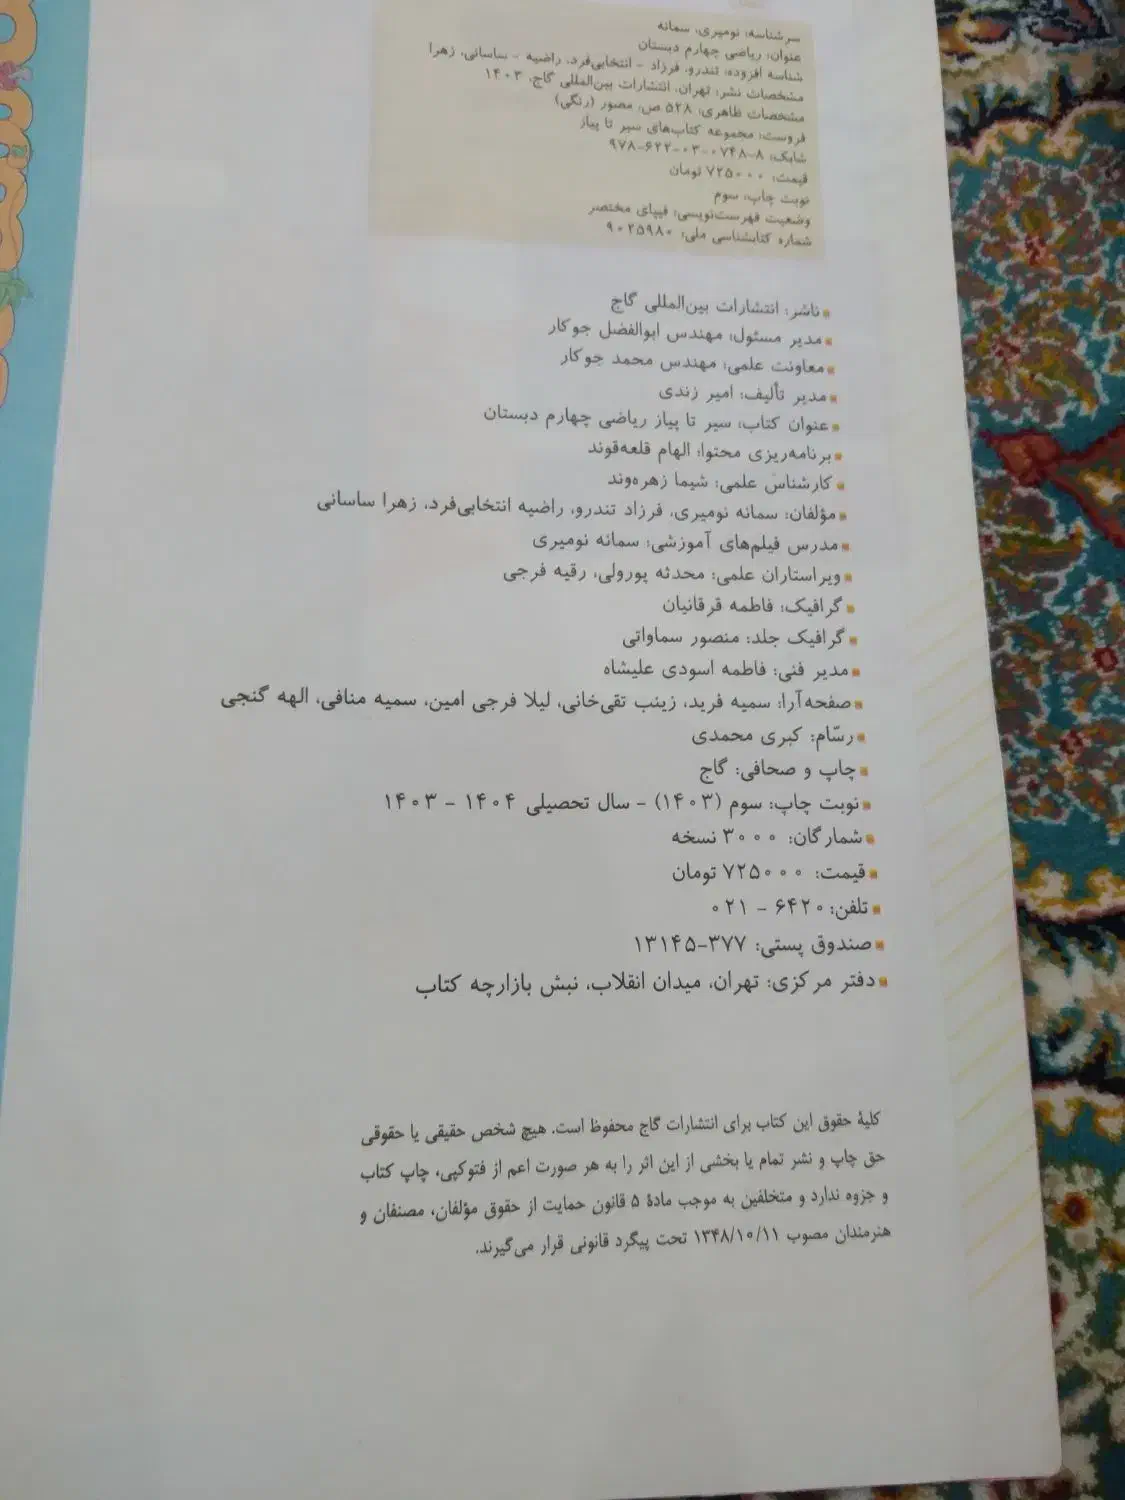 سرشناسه: نومیری، سمانه
عنوان: ریاضی چهارم دبستان
شناسه افزوده: تندرو، فرزاد - انتخابی‌فرد، راضیه - ساسانی، زهرا
مشخصات نشر: تهران، انتشارات بین‌المللی گاج، ۱۴۰۳
مشخصات ظاهری: ۵۲۸ ص، مصور (رنگی)
فروست: مجموعه کتاب‌های سیر تا پیاز
شابک: ۸-۰۷۴۸-۰۳-۶۲۲-۹۷۸
قیمت: ۷۲۵۰۰۰ تومان
نوبت چاپ: سوم
وضعیت فهرست‌نویسی: فیپای مختصر
شماره کتابشناسی ملی: ۹۰۲۵۹۸۰
ناشر: انتشارات بین‌المللی گاج
مدیر مسئول: مهندس ابوالفضل جوکار
معاونت علمی: مهندس محمد جوکار
مدیر تألیف: امیر زندی
عنوان کتاب: سیر تا پیاز ریاضی چهارم دبستان
برنامه‌ریزی محتوا: الهام قلعه‌قوند
کارشناس علمی: شیما زهره‌وند
مؤلفان: سمانه نومیری، فرزاد تندرو، راضیه انتخابی‌فرد، زهرا ساسانی
مدرس فیلم‌های آموزشی: سمانه نومیری
ویراستاران علمی: محدثه پورولی، رقیه فرجی
گرافیک: فاطمه قرقانیان
گرافیک جلد: منصور سماواتی
مدیر فنی: فاطمه اسودی علیشاه
صفحه‌آرا: سمیه فرید، زینب تقی‌خانی، لیلا فرجی امین، سمیه منافی، الهه گنجی
رسّام: کبری محمدی
چاپ و صحافی: گاج
نوبت چاپ: سوم (۱۴۰۳) - سال تحصیلی ۱۴۰۴ - ۱۴۰۳
شمارگان: ۳۰۰۰ نسخه
قیمت: ۷۲۵۰۰۰ تومان
تلفن: ۶۴۲۰ - ۰۲۱
صندوق پستی: ۳۷۷-۱۳۱۴۵
دفتر مرکزی: تهران، میدان انقلاب، نبش بازارچه کتاب
کلیهٔ حقوق این کتاب برای انتشارات گاج محفوظ است. هیچ شخص حقیقی یا حقوقی
حق چاپ و نشر تمام یا بخشی از این اثر را به هر صورت اعم از فتوکپی، چاپ کتاب
و جزوه ندارد و متخلفین به موجب مادهٔ ۵ قانون حمایت از حقوق مؤلفان، مصنفان و
هنرمندان مصوب ۱۳۴۸/۱۰/۱۱ تحت پیگرد قانونی قرار می‌گیرند.